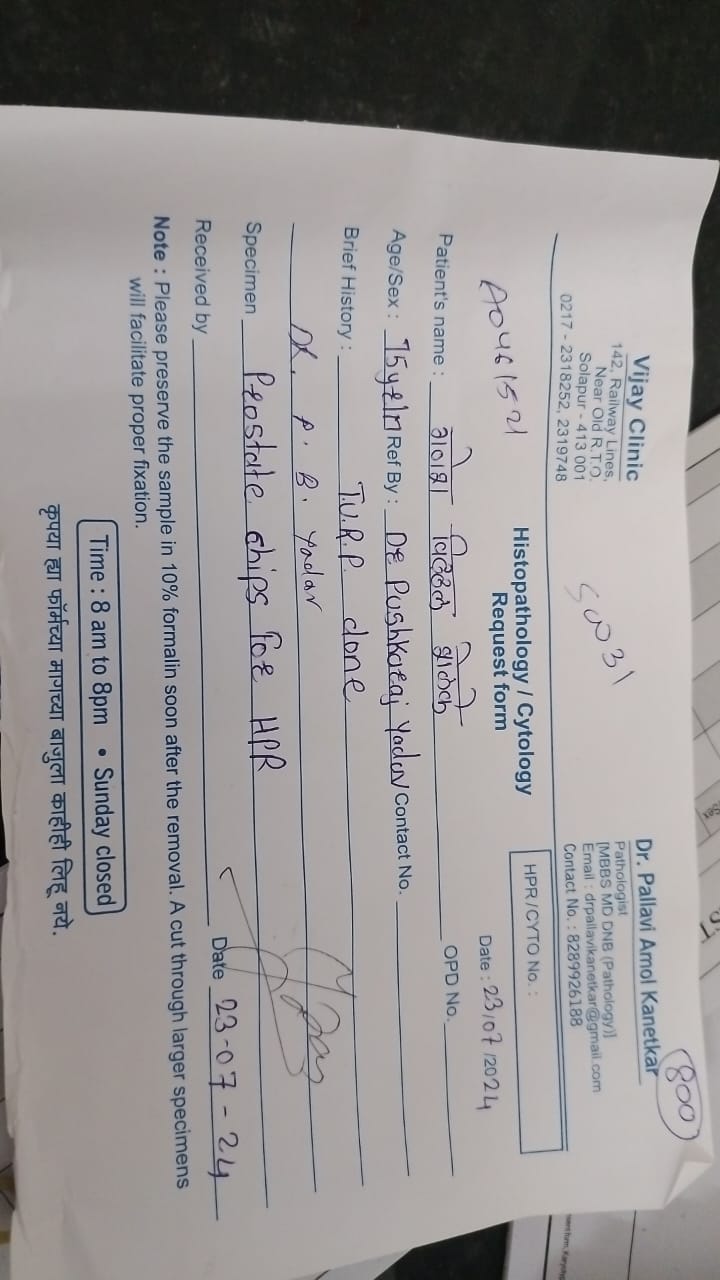 800
Vijay Clinic
142, Railway Lines,
Near Old R.T.O.
Solapur - 413 001
0217 - 2318252, 2319748
50031
Dr. Pallavi Amol Kanetkar
Pathologist
[MBBS MD DNB (Pathology)]
Email : drpallavikanetkar@gmail.com
Contact No. : 8289926188
Histopathology / Cytology
Request form
HPR / CYTO No. :
A0461521
Date : 23/07/2024
Patient's name : गणेश विठ्ठल OPD No.
Age/Sex : 75yrs/m Ref By : Dr Pushkaraj Yadav Contact No.
Brief History : T.U.R.P. done
Dr. P. B. Yadav
Specimen Prostate chips For HPR
Received by Date 23-07-24
Note : Please preserve the sample in 10% formalin soon after the removal. A cut through larger specimens
will facilitate proper fixation.
Time : 8 am to 8pm • Sunday closed
कृपया ह्या फॉर्मच्या मागच्या बाजुला काहीही लिहू नये.